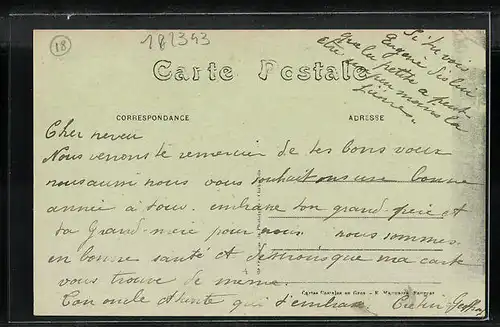 18
182393
Si tu vois
Eugénie dis lui
que la petite a peut
etre un peu moins la
fièvre.
Carte Postale
CORRESPONDANCE
ADRESSE
Cher neveu
Nous venons te remercier de tes bons voeux
nous aussi nous vous souhaitons une bonne
année a tous. embrasse ton grand-père et
ta Grand-mère pour nous. nous sommes
en bonne santé et desirons que ma carte
vous trouve de meme.
Ton oncle et tante qui t'embrasse
Cartes Postales en Gros